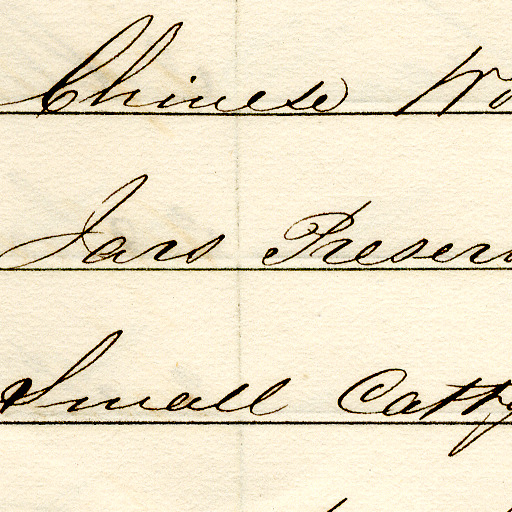 Chinese Wo
Jars Preser
Small Catty